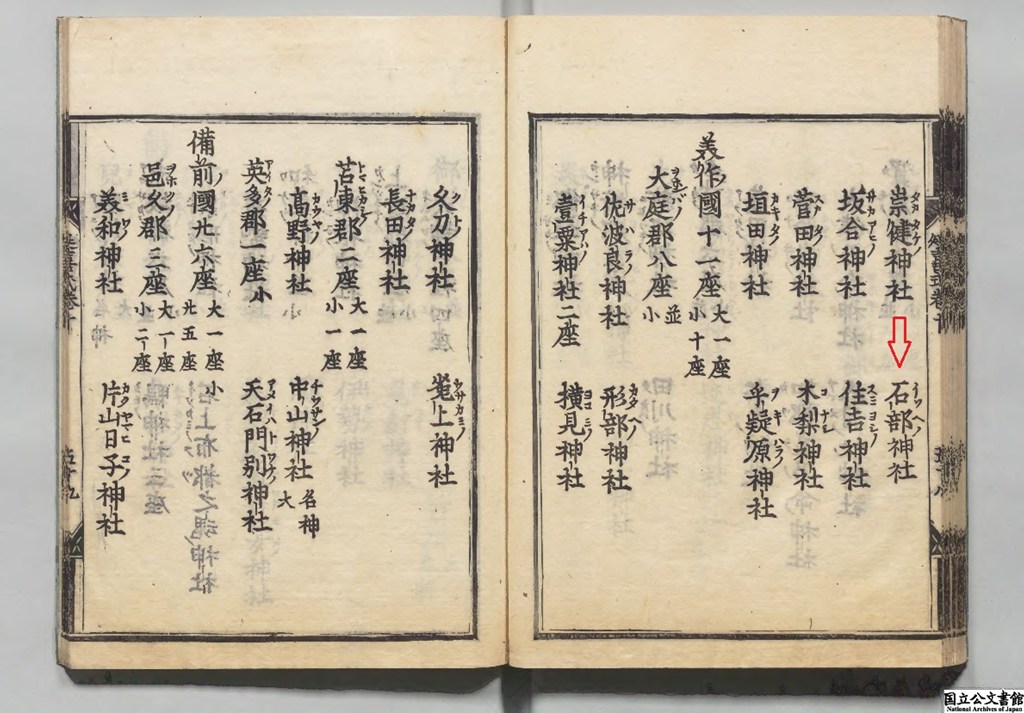 崇健神社 石部神社
坂合神社 住吉神社
菅田神社 木梨神社
垣田神社 乎疑原神社
美作國十一座 大一座 小十座
大庭郡八座 並小
佐波良神社 形部神社
壹粟神社二座 横見神社
久刀神社 兎上神社
長田神社
苫東郡二座 大一座 小一座
高野神社 中山神社 名神大
英多郡一座 小
天石門別神社
備前國廿六座 大一座 小廿五座
邑久郡三座 大一座 小二座
美和神社 片山日子神社
国立公文書館
National Archives of Japan